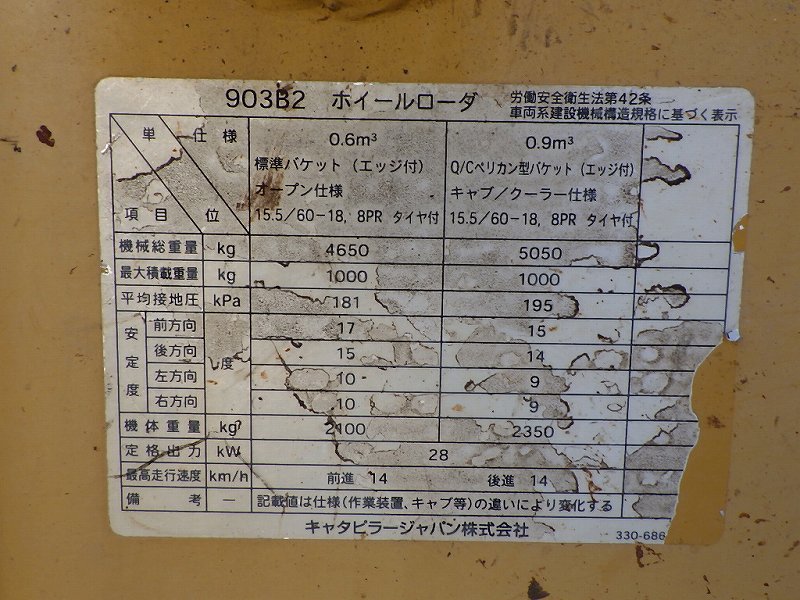 903B2 ホイールローダ
労働安全衛生法第42条
車両系建設機械構造規格に基づく表示
単 仕様
項目 位
0.6m³
標準バケット (エッジ付)
オープン仕様
15.5/60-18, 8PR タイヤ付
0.9m³
Q/Cペリカン型バケット (エッジ付)
キャブ/クーラー仕様
15.5/60-18, 8PR タイヤ付
機械総重量 kg 4650 5050
最大積載重量 kg 1000 1000
平均接地圧 kPa 181 195
安定度 前方向 度 17 15
後方向 15 14
左方向 10 9
右方向 10 9
機体重量 kg 2100 2350
定格出力 kW 28
最高走行速度 km/h 前進 14 後進 14
備考 － 記載値は仕様(作業装置、キャブ等)の違いにより変化する
キャタピラージャパン株式会社
330-686